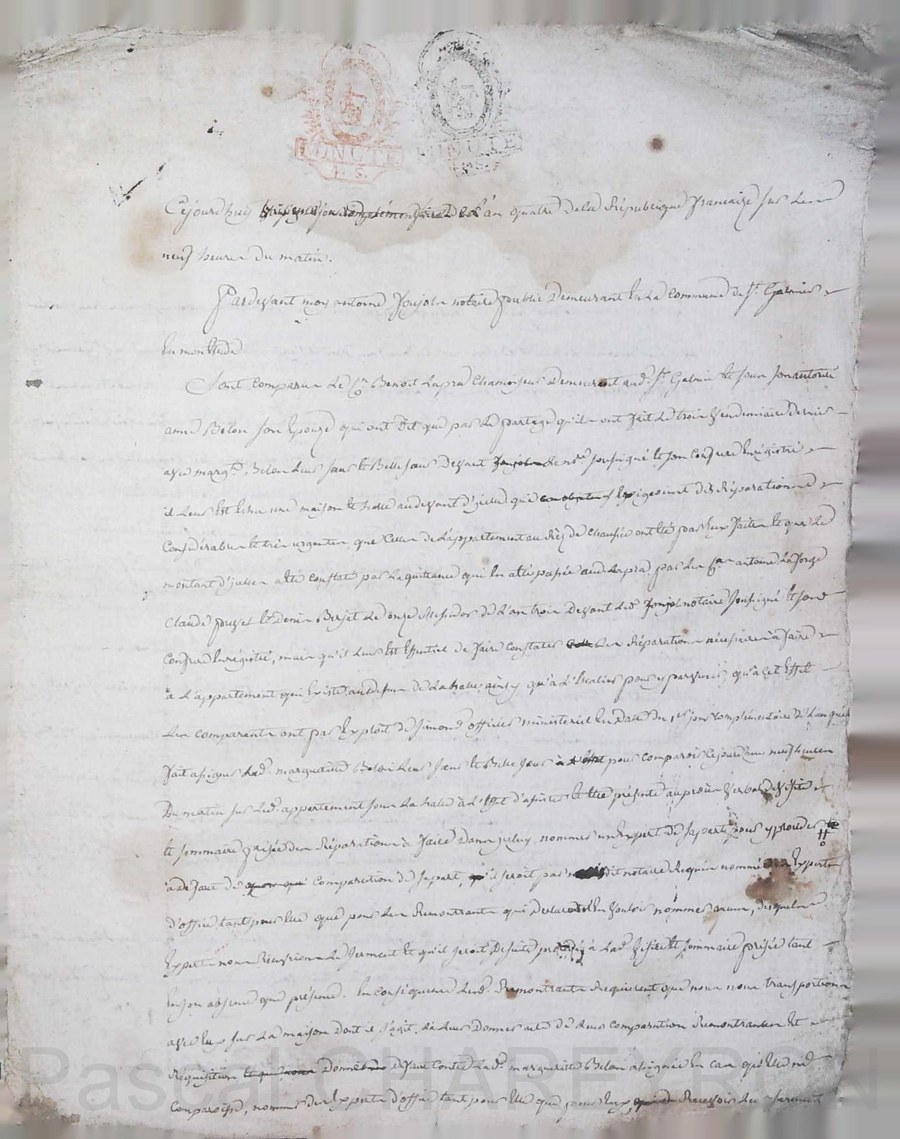 Cejourdhuy L'an quatre dela République francaise sur Les
neuf heures du matin.
Pardevant moy antoine notaire public Demeurant En La Commune de St. Galmier
Sont Comparus Le Cn. Benoit Lapra Chamoiseur Demeurant aud. St. Galmier Et sous son autorité
anne Belon son Epouze qui ont Dit que par Le partage qu'ils ont fait Le trois Vendemiaire Dernier
avec margte. Belon Leur sœur Et Belle sœur Devant Le no.re soussigné Et son Confrere Enrégistré
il Leur Est Echu une maison Et audevant d'icelle que Exigeoient des Réparations
Considérables Et très urgentes, que Celles de L'appartement au Réz de Chaussée ont été par Eux faites Et que Le
montant d'jcelles a été Constaté par La quittance qui En a été passée aud Lapra par Les Cns. antoine
Claude Et Denis Le onze Messidor de L'an trois Devant Led. notaire soussigné Et son
Confrere Enrégistré, mais qu'il Leur Est Essentiel de faire Constater Les Réparations nécessaires à faire
à L'appartement qui Existe audessus de La ainsy qu'à L'Escalier pour y parvenir, qu'à Cet Effet
Les Comparants ont par Exploit de Simond officier ministeriel En Date du 1er jour Complémentaire de L'an
fait assigner Lad. margueritte Belon Leur sœur Et Belle sœur pour Comparoir Cejourd'huy neuf heures
Du matin sur Led. appartement sous La à L'Effet d'assister Et Etre présente au procès Verbal de Visite
Et sommaire prisée des Réparations à faire Dans jceluy, nommer un Expert de sa part pour y procéder
à défaut de Comparution de sa part, qu'il seroit par dit notaire Requis nommé Experts
D'office tant pour Elle que pour Les Remontrants qui Declarent En Vouloir nommer aucun, desquels
Experts nous Recevrions Le serment Et qu'il seroit De suite procédé à Lad. Visite Et sommaire prisée tant
En son absence que présence. En Conséquence Lesd. Remontrants Requierent que nous nous transportions
avec Eux sur La maison dont il s'agit, De Leur Donner acte de Leur Comparution Remontrances Et
Requisition donner défaut Contre Lad. margueritte Belon assignée En Cas qu'Elle ne
Comparoisse, nommer des Experts d'office tant pour Elle que pour Eux, Recevoir Leur serment
Pascal CHAREYRON